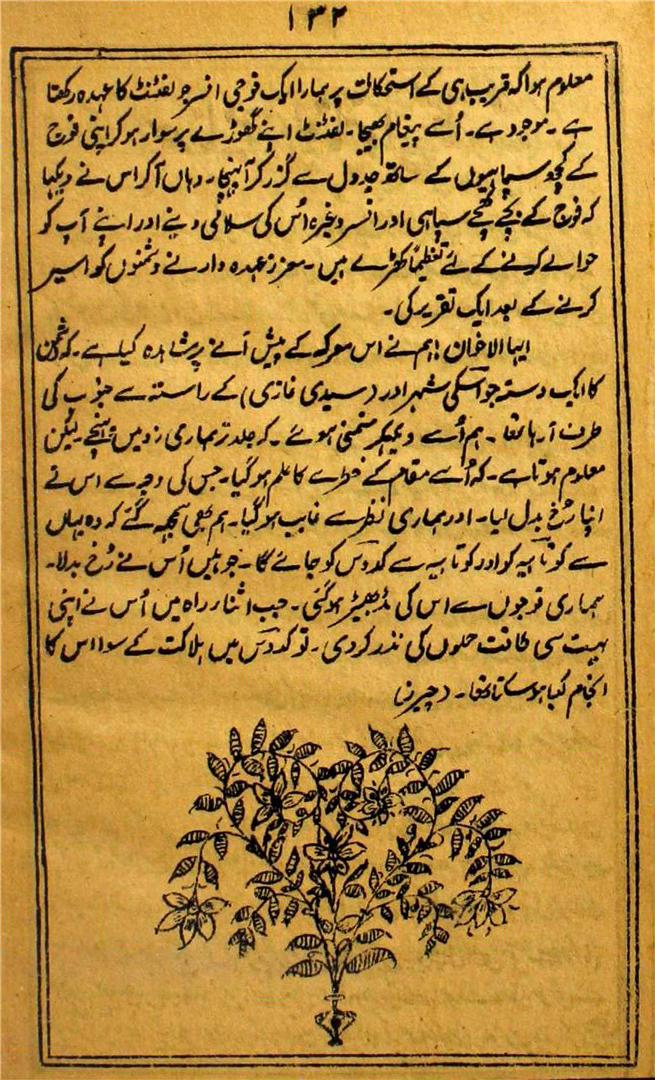 ۱۳۲
معلوم ہوا کہ قریب ہی کے استحکامات پر ہمارا ایک فوجی افسر جو لفٹنٹ کا عہدہ رکھتا
ہے۔ موجود ہے۔ اُسے پیغام بھیجا۔ لفٹنٹ اپنے گھوڑے پر سوار ہو کر اپنی فوج
کے کچھ سپاہیوں کے ساتھ جدول سے گذر کر آ پہنچا۔ وہاں آ کر اس نے دیکھا
کہ فوج کے بچے کھچے سپاہی اور افسر وغیرہ اُس کی سلامی دینے اور اپنے آپ کو
حوالے کرنے کے لئے تنظیماً کھڑے ہیں۔ معزز عہدہ دار نے دشمنوں کو اسیر
کرنے کے بعد ایک تقریر کی۔
ایہا الاخوان! ہم نے اس معرکہ کے پیش آنے پر مشاہدہ کیا ہے۔ کہ دشمن
کا ایک دستہ جو آسکی شہر اور (سیدی غازی) کے راستہ سے جنوب کی
طرف آ رہا تھا۔ ہم اُسے دیکھکر متمنی ہوئے۔ کہ جلد تر ہماری زد میں پہنچے۔ لیکن
معلوم ہوتا ہے۔ کہ اُسے مقام کے خطرے کا علم ہو گیا۔ جس کی وجہ سے اس نے
اپنا رُخ بدل لیا۔ اور ہماری نظر سے غایب ہو گیا۔ ہم بھی سمجھ گئے کہ وہ یہاں
سے کوتاہیہ کو اور کوتاہیہ سے کدوس کو جائے گا۔ جوہیں اُس نے رُخ بدلا۔
ہماری فوجوں سے اس کی مڈبھیڑ ہو گئی۔ جب اثنار راہ میں اُس نے اپنی
بہت سی طاقت حملوں کی نذر کر دی۔ تو کدوس میں ہلاکت کے سوا اس کا
انجام کیا ہو سکتا تھا۔